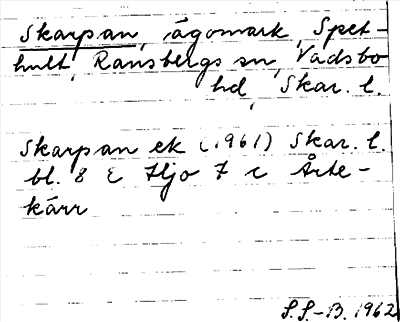 Skarpan, ägomark, Spet-
hult, Ransbergs sn, Vadsbo
hd, Skar. l.
Skarpan ek (1961) Skar. l.
bl. 8 E Hjo 7 c Årte-
kärr
S.S.-B. 1962